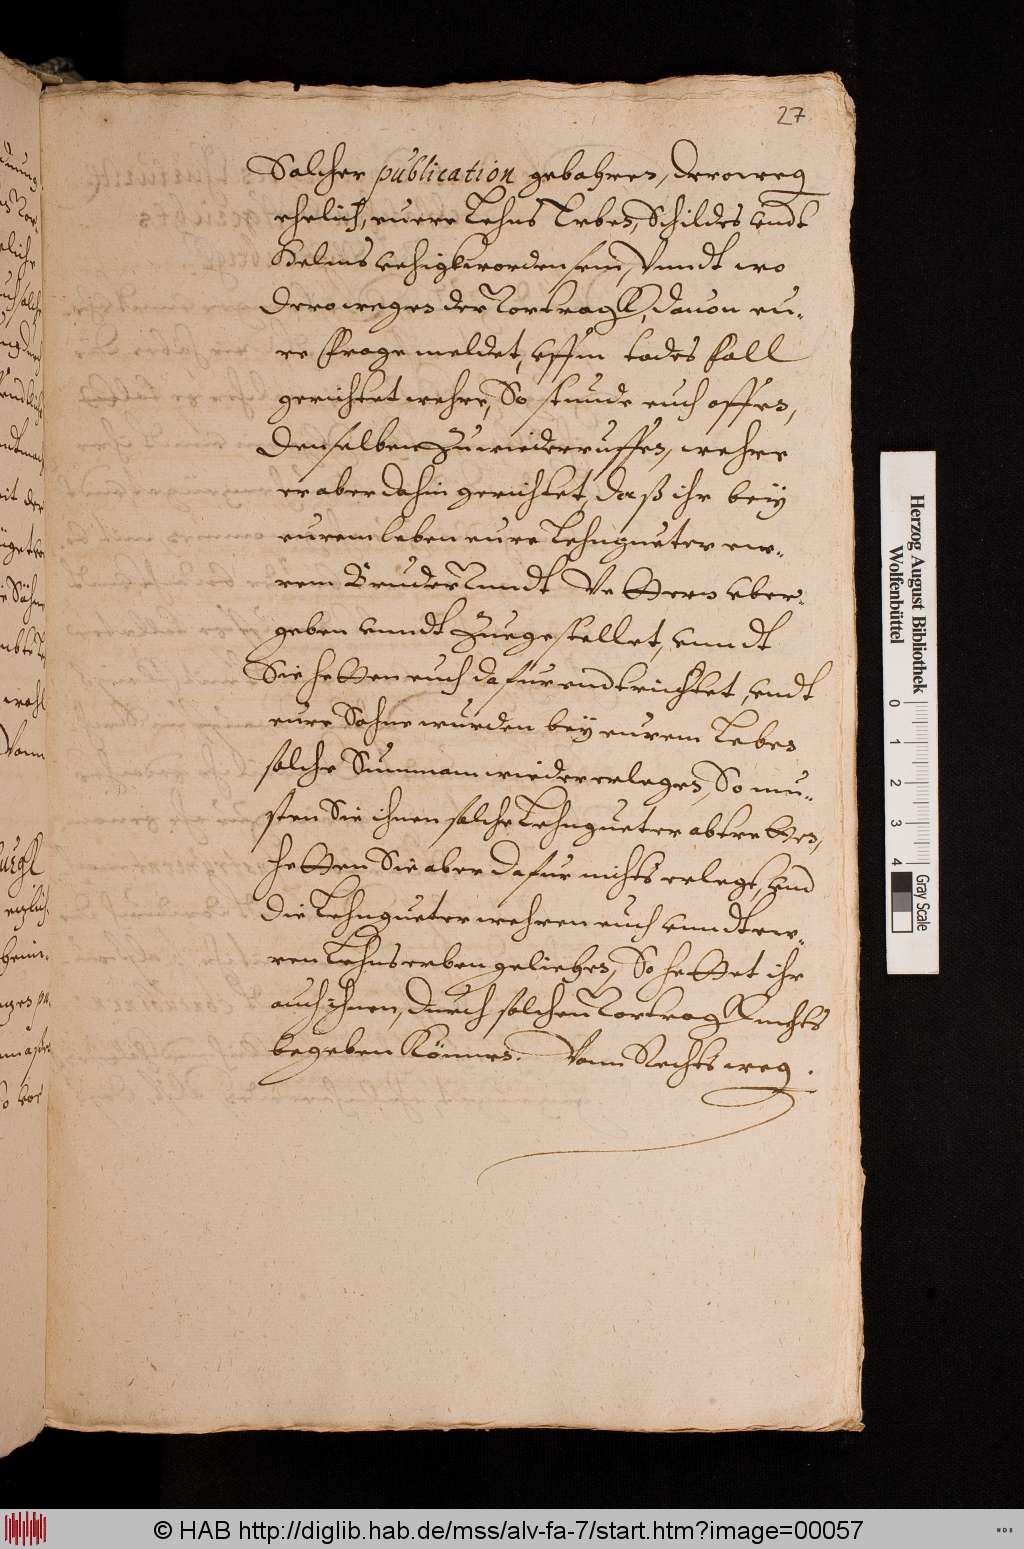 27
Solcher publication gebohren, deroweg
ehelich, euere Lehns Erben, Schildes undt
Helms vehigk worden sein, Vnndt wo
deroweges der Vortragk, dauon eu-
re frage meldet, vffm todes fall
gerichtet wehre, So stunde euch offen,
denselben Zuwiederruffen, wehre
er aber dahin gerichtet, daß ihr beÿ
eurem leben eure Lehngueter ew-
rem Bruder vnndt Vettern vber-
geben vnndt Zuegestellet, vnndt
Sie hetten euch dafur endtrichtet, vndt
eure Sohne wurden beÿ eurem Leben
solche Summam wiedererlegen, So mu-
sten Sie ihnen solche Lehngueter abtretten,
hetten Sie aber dafur nichts erlegt, vnd
die Lehngueter wehren euch vnndt ew-
ren Lehnserben geliehen, So hettet ihr
auch ihnen, durch solchen Vortrag Nichts
begeben Können. Vonn Rechts weg.
Herzog August Bibliothek
Wolfenbüttel
0 1 2 3 4
Gray Scale
© HAB http://diglib.hab.de/mss/alv-fa-7/start.htm?image=00057